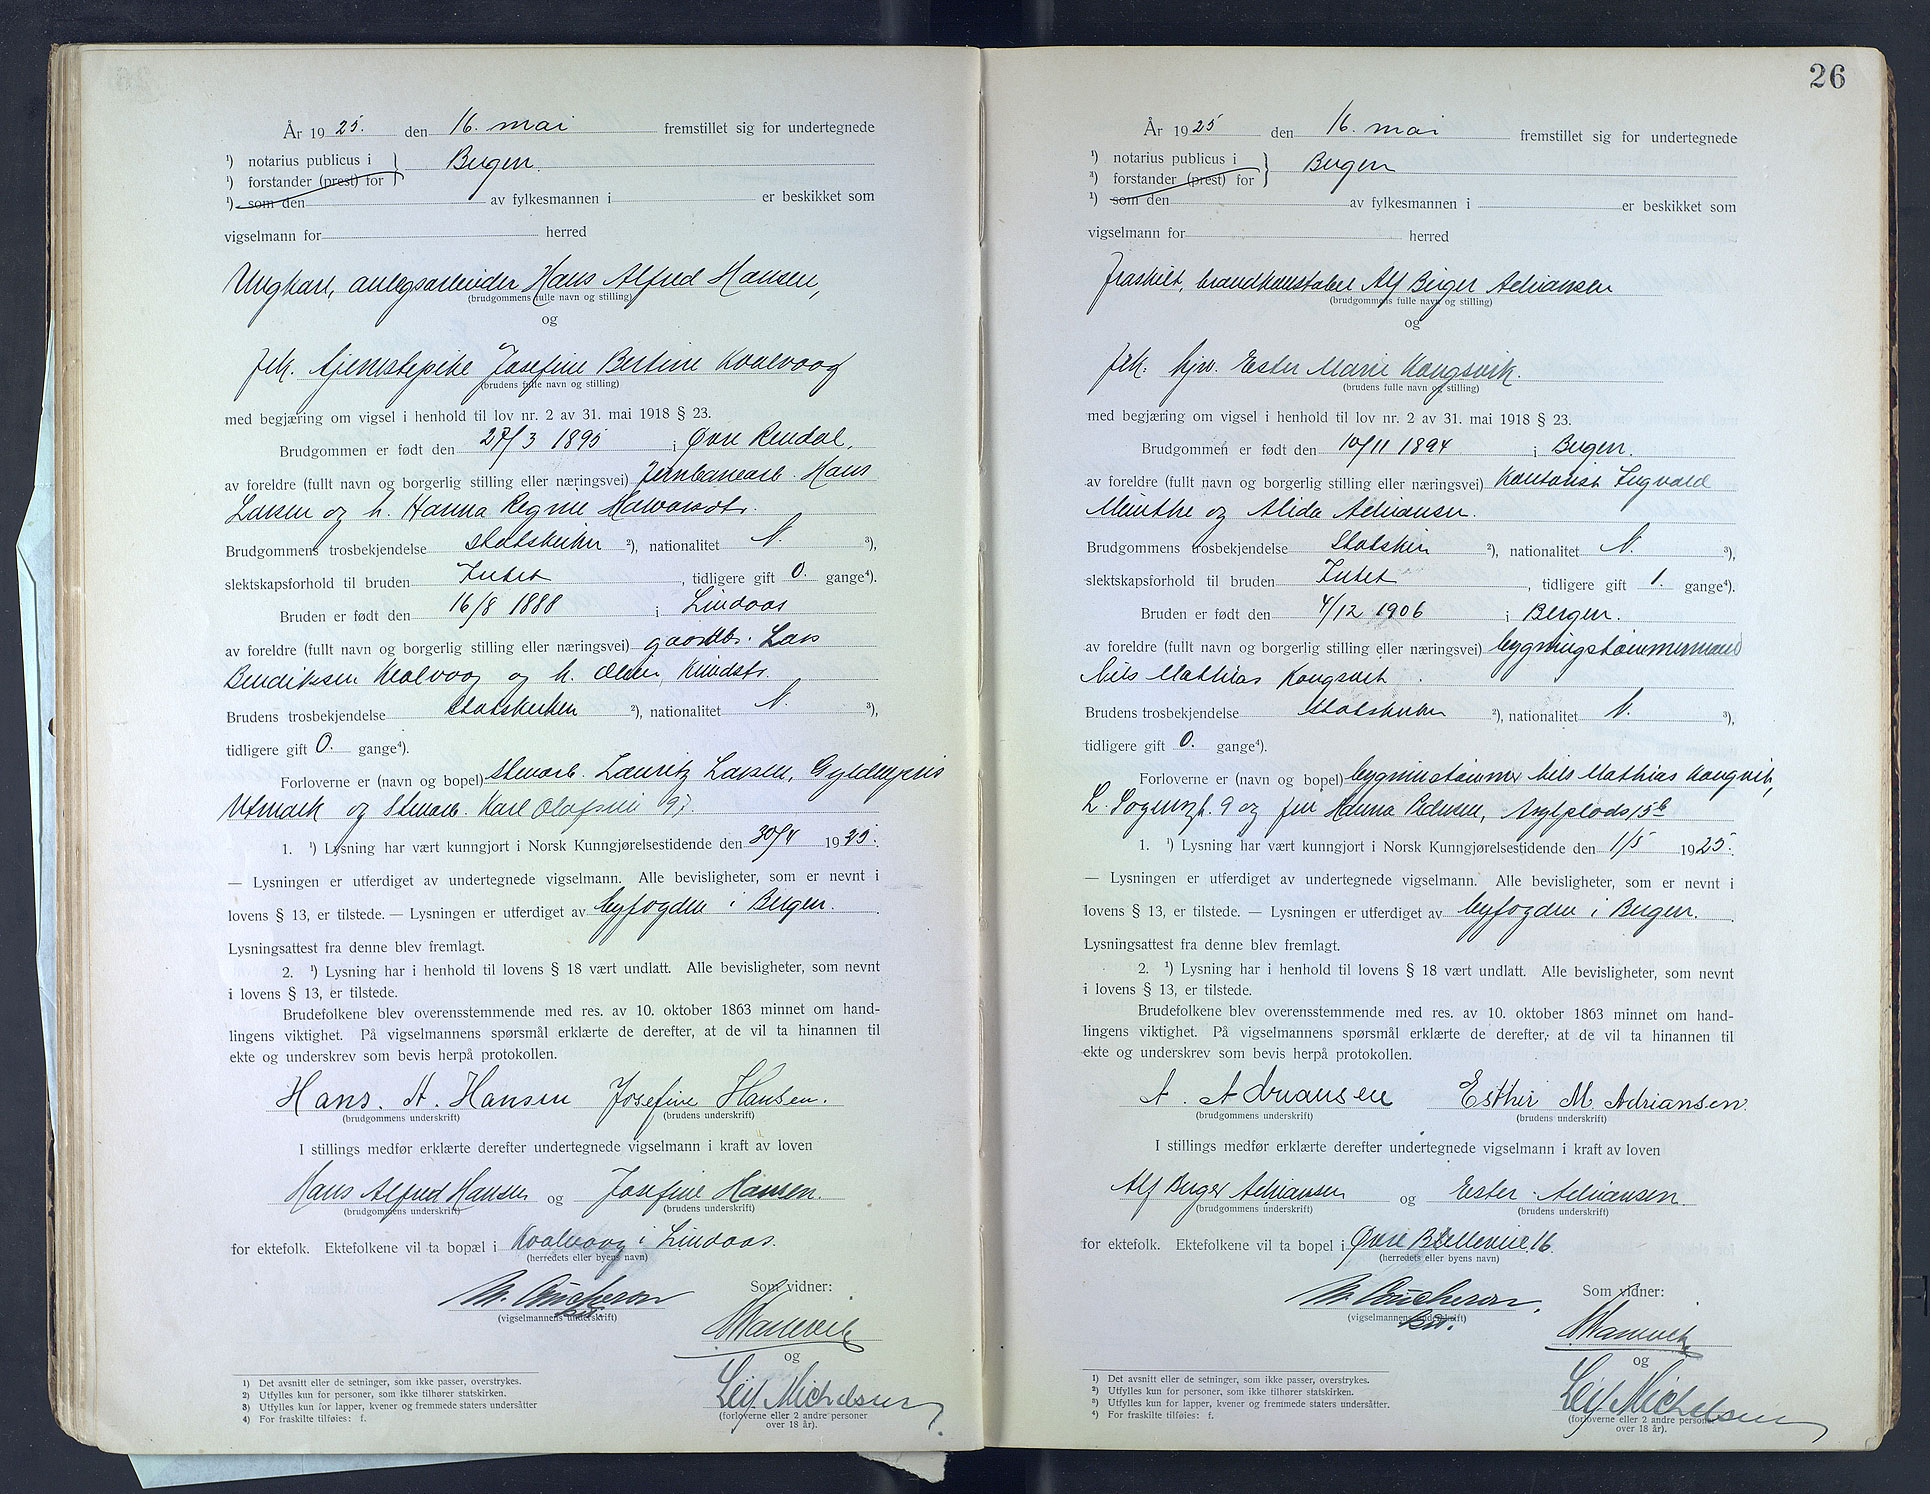 År 1925. den 16. mai fremstillet sig for undertegnede
¹) notarius publicus i } Bergen.
¹) forstander (prest) for
¹) som den av fylkesmannen i er beskikket som
vigselmann for herred
Ungkarl, anlegsarbeider Hans Alfred Hansen,
(brudgommens fulle navn og stilling)
og
frk. tjenestepike Josefine Bertine Kvalvaag
(brudens fulle navn og stilling)
med begjæring om vigsel i henhold til lov nr. 2 av 31. mai 1918 § 23.
Brudgommen er født den 27/3 1895 i Øvre Rendal,
av foreldre (fullt navn og borgerlig stilling eller næringsvei) Jernbanearb. Hans
Larsen og h. Hanna Regine Halvorsdtr.
Brudgommens trosbekjendelse Statskirken ²), nationalitet N. ³),
slektskapsforhold til bruden Intet, tidligere gift 0. gange⁴).
Bruden er født den 16/8 1888 i Lindaas
av foreldre (fullt navn og borgerlig stilling eller næringsvei) gaardbr. Lars
Bendiksen Kvalvaag og h. Knudsdtr.
Brudens trosbekjendelse Statskirken ²), nationalitet N. ³),
tidligere gift 0. gange⁴).
Forloverne er (navn og bopel) Stenarb. Lauritz Larsen, Gyldenpris
Utmark og Stenarb. Karl Olafsen 97.
1. ¹) Lysning har vært kunngjort i Norsk Kunngjørelsestidende den 30/4 1925.
— Lysningen er utferdiget av undertegnede vigselmann. Alle bevisligheter, som er nevnt i
lovens § 13, er tilstede. — Lysningen er utferdiget av byfogden i Bergen.
Lysningsattest fra denne blev fremlagt.
2. ¹) Lysning har i henhold til lovens § 18 vært undlatt. Alle bevisligheter, som nevnt
i lovens § 13, er tilstede.
Brudefolkene blev overensstemmende med res. av 10. oktober 1863 minnet om hand-
lingens viktighet. På vigselmannens spørsmål erklærte de derefter, at de vil ta hinannen til
ekte og underskrev som bevis herpå protokollen.
Hans. A. Hansen Josefine Hansen.
(brudgommens underskrift) (brudens underskrift)
I stillings medfør erklærte derefter undertegnede vigselmann i kraft av loven
Hans Alfred Hansen og Josefine Hansen.
(brudgommens underskrift) (brudens underskrift)
for ektefolk. Ektefolkene vil ta bopæl i Kvalvaag i Lindaas.
(herredets eller byens navn)
Som vidner:
kst.
(vigselmannens underskrift)
og
Leif Michelsen
(forloverne eller 2 andre personer
over 18 år).
1) Det avsnitt eller de setninger, som ikke passer, overstrykes.
2) Utfylles kun for personer, som ikke tilhører statskirken.
3) Utfylles kun for lapper, kvener og fremmede staters undersåtter
4) For fraskilte tilføies: f.
26
År 1925 den 16. mai fremstillet sig for undertegnede
¹) notarius publicus i } Bergen
²) forstander (prest) for
¹) som den av fylkesmannen i er beskikket som
vigselmann for herred
fraskilt, brandkonstabel Alf Birger Adriansen
(brudgommens fulle navn og stilling)
og
frk. hjv. Ester Marie Kongsvik.
(brudens fulle navn og stilling)
med begjæring om vigsel i henhold til lov nr. 2 av 31. mai 1918 § 23.
Brudgommen er født den 10/11 1894 i Bergen.
av foreldre (fullt navn og borgerlig stilling eller næringsvei) Kontorist Ingvald
Minthe og Alida Adriansen.
Brudgommens trosbekjendelse Statskir ²), nationalitet N. ³),
slektskapsforhold til bruden Intet, tidligere gift 1. gange⁴).
Bruden er født den 4/12 1906 i Bergen.
av foreldre (fullt navn og borgerlig stilling eller næringsvei) bygningstømmermand
Nils Mathias Kongsvik.
Brudens trosbekjendelse Statskirken ²), nationalitet N. ³),
tidligere gift 0. gange⁴).
Forloverne er (navn og bopel) bygningstømmer Nils Mathias Kongsvik,
9 og fru Hanna 15b
1. ¹) Lysning har vært kunngjort i Norsk Kunngjørelsestidende den 1/5 1925.
— Lysningen er utferdiget av undertegnede vigselmann. Alle bevisligheter, som er nevnt i
lovens § 13, er tilstede. — Lysningen er utferdiget av byfogden i Bergen.
Lysningsattest fra denne blev fremlagt.
2. ¹) Lysning har i henhold til lovens § 18 vært undlatt. Alle bevisligheter, som nevnt
i lovens § 13, er tilstede.
Brudefolkene blev overensstemmende med res. av 10. oktober 1863 minnet om hand-
lingens viktighet. På vigselmannens spørsmål erklærte de derefter, at de vil ta hinannen til
ekte og underskrev som bevis herpå protokollen.
A. Adriansen Esther M. Adriansen.
(brudgommens underskrift) (brudens underskrift)
I stillings medfør erklærte derefter undertegnede vigselmann i kraft av loven
Alf Birger Adriansen og Ester Adriansen.
(brudgommens underskrift) (brudens underskrift)
for ektefolk. Ektefolkene vil ta bopel i Øvre Blekevei 16.
(herredets eller byens navn)
Som vidner:
kst.
(vigselmannens underskrift)
og
Leif Michelsen
(forloverne eller 2 andre personer
over 18 år).
1) Det avsnitt eller de setninger, som ikke passer, overstrykes.
2) Utfylles kun for personer, som ikke tilhører statskirken.
3) Utfylles kun for lapper, kvener og fremmede staters undersåtter.
4) For fraskilte tilføies: f.